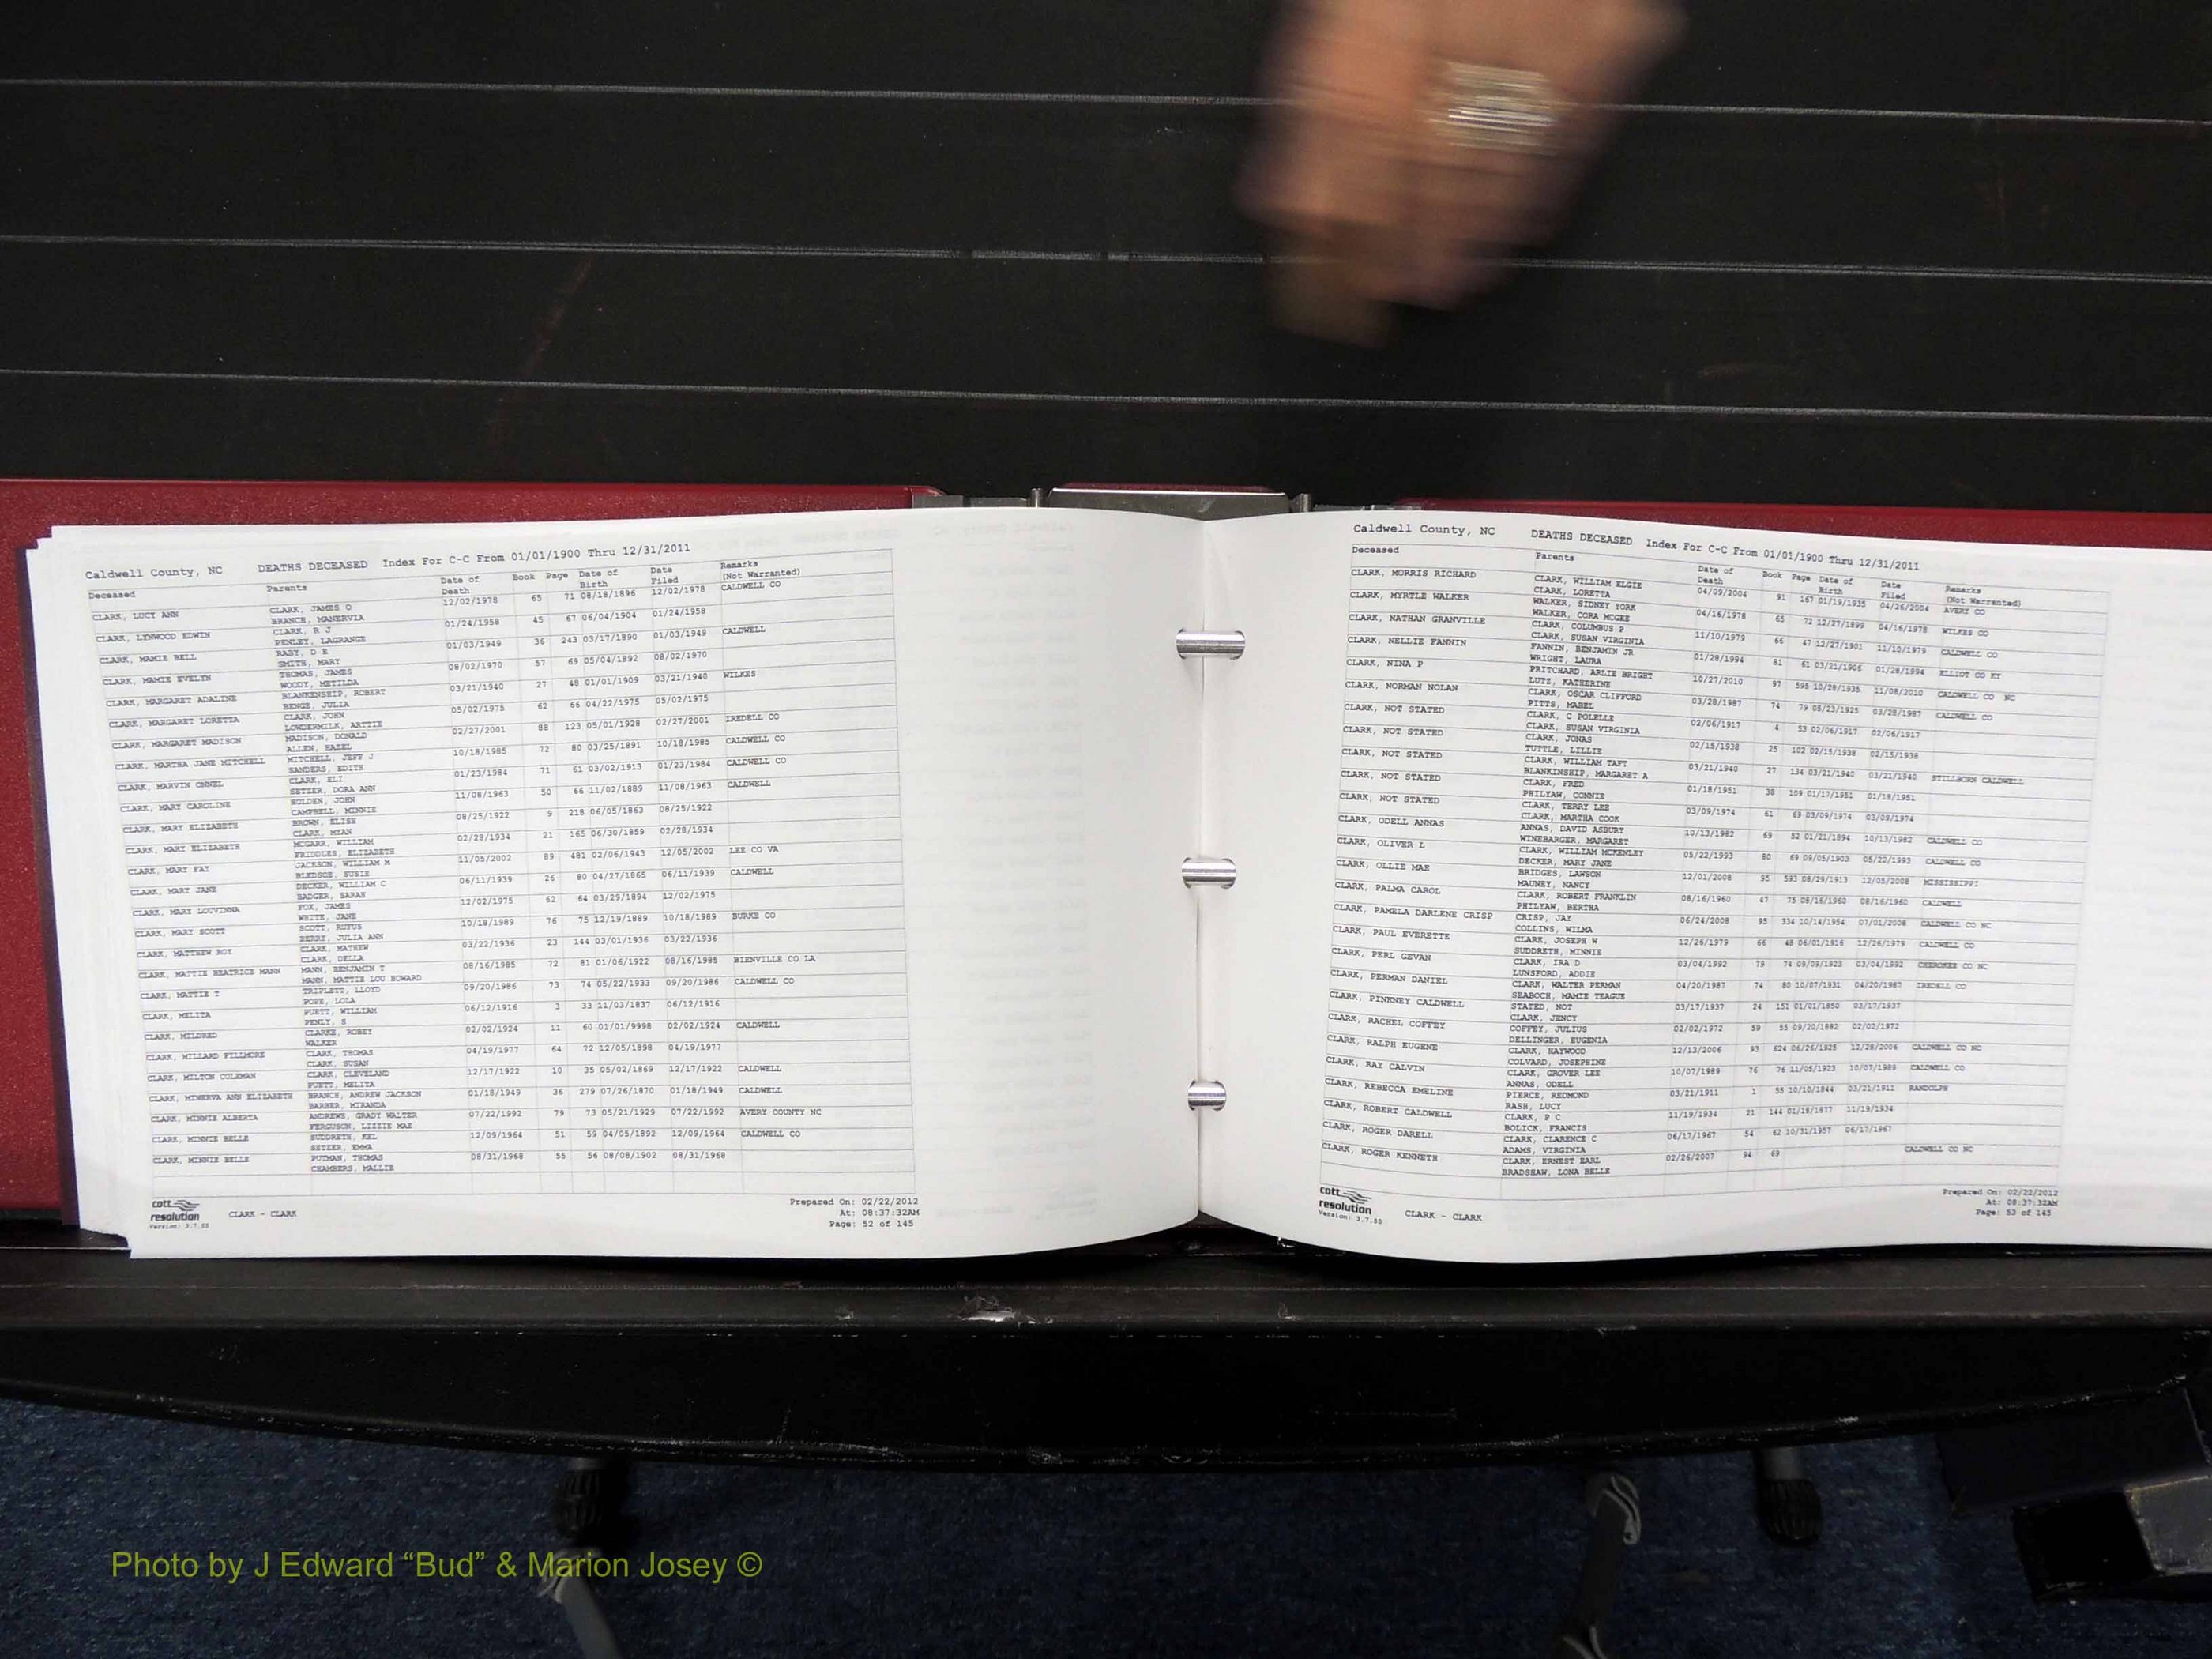 Caldwell County, NC DEATHS DECEASED Index For C-C From 01/01/1900 Thru 12/31/2011
Deceased Parents Date of Death Book Page Date of Birth Date Filed Remarks (Not Warranted)
CLARK, LUCY ANN CLARK, JAMES O 12/02/1978 65 71 08/18/1896 12/02/1978 CALDWELL CO
BRANCH, MANERVIA
CLARK, LYNWOOD EDWIN CLARK, R J 01/24/1958 45 67 06/04/1904 01/24/1958
PENLEY, LAGRANGE
CLARK, MAMIE BELL RABY, D E 01/03/1949 36 243 03/17/1890 01/03/1949 CALDWELL
SMITH, MARY
CLARK, MAMIE EVELYN THOMAS, JAMES 08/02/1970 57 69 05/04/1892 08/02/1970
WOODY, METILDA
CLARK, MARGARET ADALINE BLANKENSHIP, ROBERT 03/21/1940 27 48 01/01/1909 03/21/1940 WILKES
BENGE, JULIA
CLARK, MARGARET LORETTA CLARK, JOHN 05/02/1975 62 66 04/22/1975 05/02/1975
LOWDERMILK, ARTTIE
CLARK, MARGARET MADISON MADISON, DONALD 02/27/2001 88 123 05/01/1928 02/27/2001 IREDELL CO
ALLEN, HAZEL
CLARK, MARTHA JANE MITCHELL MITCHELL, JEFF J 10/18/1985 72 80 03/25/1891 10/18/1985 CALDWELL CO
SANDERS, EDITH
CLARK, MARVIN ONNEL CLARK, ELI 01/23/1984 71 61 03/02/1913 01/23/1984 CALDWELL CO
SETZER, DORA ANN
CLARK, MARY CAROLINE HOLDEN, JOHN 11/08/1963 50 66 11/02/1889 11/08/1963 CALDWELL
CAMPBELL, MINNIE
CLARK, MARY ELIZABETH BROWN, ELISH 08/25/1922 9 218 06/05/1863 08/25/1922
CLARK, MYAN
CLARK, MARY ELIZABETH MCGARR, WILLIAM 02/28/1934 21 165 06/30/1859 02/28/1934
FRIDDLES, ELIZABETH
CLARK, MARY FAY JACKSON, WILLIAM M 11/05/2002 89 481 02/06/1943 12/05/2002 LEE CO VA
BLEDSOE, SUSIE
CLARK, MARY JANE DECKER, WILLIAM C 06/11/1939 26 80 04/27/1865 06/11/1939 CALDWELL
BADGER, SARAH
CLARK, MARY LOUVINNA FOX, JAMES 12/02/1975 62 64 03/29/1894 12/02/1975
WHITE, JANE
CLARK, MARY SCOTT SCOTT, RUFUS 10/18/1989 76 75 12/19/1889 10/18/1989 BURKE CO
BERRY, JULIA ANN
CLARK, MATTHEW ROY CLARK, MATHEW 03/22/1936 23 144 03/01/1936 03/22/1936
CLARK, DELLA
CLARK, MATTIE BEATRICE MANN MANN, BENJAMIN T 08/16/1985 72 81 01/06/1922 08/16/1985 BIENVILLE CO LA
MANN, MATTIE LOU HOWARD
CLARK, MATTIE T TRIPLETT, LLOYD 09/20/1986 73 74 05/22/1933 09/20/1986 CALDWELL CO
POPE, LOLA
CLARK, MELITA PUETT, WILLIAM 06/12/1916 3 33 11/03/1837 06/12/1916
PENLY, S
CLARK, MILDRED CLARKE, ROBEY 02/02/1924 11 60 01/01/9998 02/02/1924 CALDWELL
WALKER
CLARK, MILLARD FILLMORE CLARK, THOMAS 04/19/1977 64 72 12/05/1898 04/19/1977
CLARK, SUSAN
CLARK, MILTON COLEMAN CLARK, CLEVELAND 12/17/1922 10 35 05/02/1869 12/17/1922 CALDWELL
PUETT, MELITA
CLARK, MINERVA ANN ELIZABETH BRANCH, ANDREW JACKSON 01/18/1949 36 279 07/26/1870 01/18/1949 CALDWELL
BARBER, MIRANDA
CLARK, MINNIE ALBERTA ANDREWS, GRADY WALTER 07/22/1992 79 73 05/21/1929 07/22/1992 AVERY COUNTY NC
FERGUSON, LIZZIE MAE
CLARK, MINNIE BELLE SUDDRETH, KEL 12/09/1964 51 59 04/05/1892 12/09/1964 CALDWELL CO
SETZER, EMMA
CLARK, MINNIE BELLE PUTMAN, THOMAS 08/31/1968 55 56 08/08/1902 08/31/1968
CHAMBERS, MALLIE
cott resolution
Version: 3.7.55
CLARK - CLARK
Prepared On: 02/22/2012
At: 08:37:32AM
Page: 52 of 145
Caldwell County, NC DEATHS DECEASED Index For C-C From 01/01/1900 Thru 12/31/2011
Deceased Parents Date of Death Book Page Date of Birth Date Filed Remarks (Not Warranted)
CLARK, MORRIS RICHARD CLARK, WILLIAM ELGIE 04/09/2004 91 167 01/19/1935 04/26/2004 AVERY CO
CLARK, LORETTA
CLARK, MYRTLE WALKER WALKER, SIDNEY YORK 04/16/1978 65 72 12/27/1899 04/16/1978 WILKES CO
WALKER, CORA MCGEE
CLARK, NATHAN GRANVILLE CLARK, COLUMBUS P 11/10/1979 66 47 12/27/1901 11/10/1979 CALDWELL CO
CLARK, SUSAN VIRGINIA
CLARK, NELLIE FANNIN FANNIN, BENJAMIN JR 01/28/1994 81 61 03/21/1906 01/28/1994 ELLIOT CO KY
WRIGHT, LAURA
CLARK, NINA P PRITCHARD, ARLIE BRIGHT 10/27/2010 97 595 10/28/1935 11/08/2010 CALDWELL CO NC
LUTZ, KATHERINE
CLARK, NORMAN NOLAN CLARK, OSCAR CLIFFORD 03/28/1987 74 79 05/23/1925 03/28/1987 CALDWELL CO
PITTS, MABEL
CLARK, NOT STATED CLARK, C POLELLE 02/06/1917 4 53 02/06/1917 02/06/1917
CLARK, SUSAN VIRGINIA
CLARK, NOT STATED CLARK, JONAS 02/15/1938 25 102 02/15/1938 02/15/1938
TUTTLE, LILLIE
CLARK, NOT STATED CLARK, WILLIAM TAFT 03/21/1940 27 134 03/21/1940 03/21/1940 STILLBORN CALDWELL
BLANKINSHIP, MARGARET A
CLARK, NOT STATED CLARK, FRED 01/18/1951 38 109 01/17/1951 01/18/1951
PHILYAW, CONNIE
CLARK, NOT STATED CLARK, TERRY LEE 03/09/1974 61 69 03/09/1974 03/09/1974
CLARK, MARTHA COOK
CLARK, ODELL ANNAS ANNAS, DAVID ASBURY 10/13/1982 69 52 01/21/1894 10/13/1982 CALDWELL CO
WINEBARGER, MARGARET
CLARK, OLIVER L CLARK, WILLIAM MCKENLEY 05/22/1993 80 69 09/05/1903 05/22/1993 CALDWELL CO
DECKER, MARY JANE
CLARK, OLLIE MAE BRIDGES, LAWSON 12/01/2008 95 593 08/29/1913 12/05/2008 MISSISSIPPI
MAUNEY, NANCY
CLARK, PALMA CAROL CLARK, ROBERT FRANKLIN 08/16/1960 47 75 08/16/1960 08/16/1960 CALDWELL
PHILYAW, BERTHA
CLARK, PAMELA DARLENE CRISP CRISP, JAY 06/24/2008 95 334 10/14/1954 07/01/2008 CALDWELL CO NC
COLLINS, WILMA
CLARK, PAUL EVERETTE CLARK, JOSEPH W 12/26/1979 66 48 06/01/1916 12/26/1979 CALDWELL CO
SUDDRETH, MINNIE
CLARK, PERL GEVAN CLARK, IRA D 03/04/1992 79 74 09/09/1923 03/04/1992 CHEROKEE CO NC
LUNSFORD, ADDIE
CLARK, PERMAN DANIEL CLARK, WALTER PERMAN 04/20/1987 74 80 10/07/1931 04/20/1987 IREDELL CO
SEABOCH, MAMIE TEAGUE
CLARK, PINKNEY CALDWELL STATED, NOT 03/17/1937 24 151 01/01/1850 03/17/1937
CLARK, JENCY
CLARK, RACHEL COFFEY COFFEY, JULIUS 02/02/1972 59 55 09/20/1882 02/02/1972
DELLINGER, EUGENIA
CLARK, RALPH EUGENE CLARK, HAYWOOD 12/13/2006 93 624 06/26/1925 12/28/2006 CALDWELL CO NC
COLVARD, JOSEPHINE
CLARK, RAY CALVIN CLARK, GROVER LEE 10/07/1989 76 76 11/05/1923 10/07/1989 CALDWELL CO
ANNAS, ODELL
CLARK, REBECCA EMELINE PIERCE, REDMOND 03/21/1911 1 55 10/10/1844 03/21/1911 RANDOLPH
RASH, LUCY
CLARK, ROBERT CALDWELL CLARK, P C 11/19/1934 21 144 01/18/1877 11/19/1934
BOLICK, FRANCIS
CLARK, ROGER DARELL CLARK, CLARENCE C 06/17/1967 54 62 10/31/1957 06/17/1967
ADAMS, VIRGINIA
CLARK, ROGER KENNETH CLARK, ERNEST EARL 02/26/2007 94 69 CALDWELL CO NC
BRADSHAW, LONA BELLE
cott resolution
Version: 3.7.55
CLARK - CLARK
Prepared On: 02/22/2012
At: 08:37:32AM
Page: 53 of 145
Photo by J Edward “Bud” & Marion Josey ©